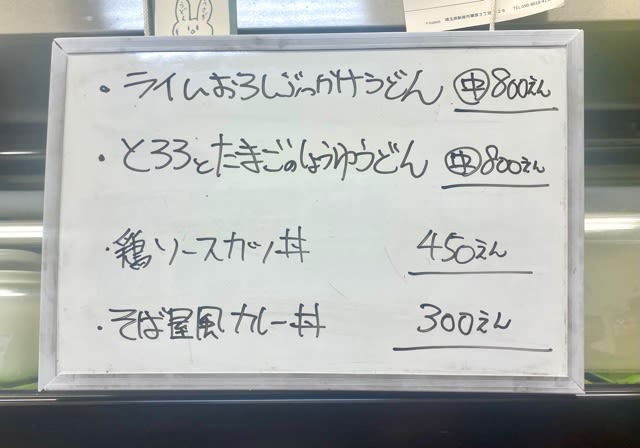 ・ライムおろしぶっかけうどん 中 800えん
・とろろとたまごのしょうゆうどん 中 800えん
・鶏ソースカツ丼 450えん
・そば屋風カレー丼 300えん